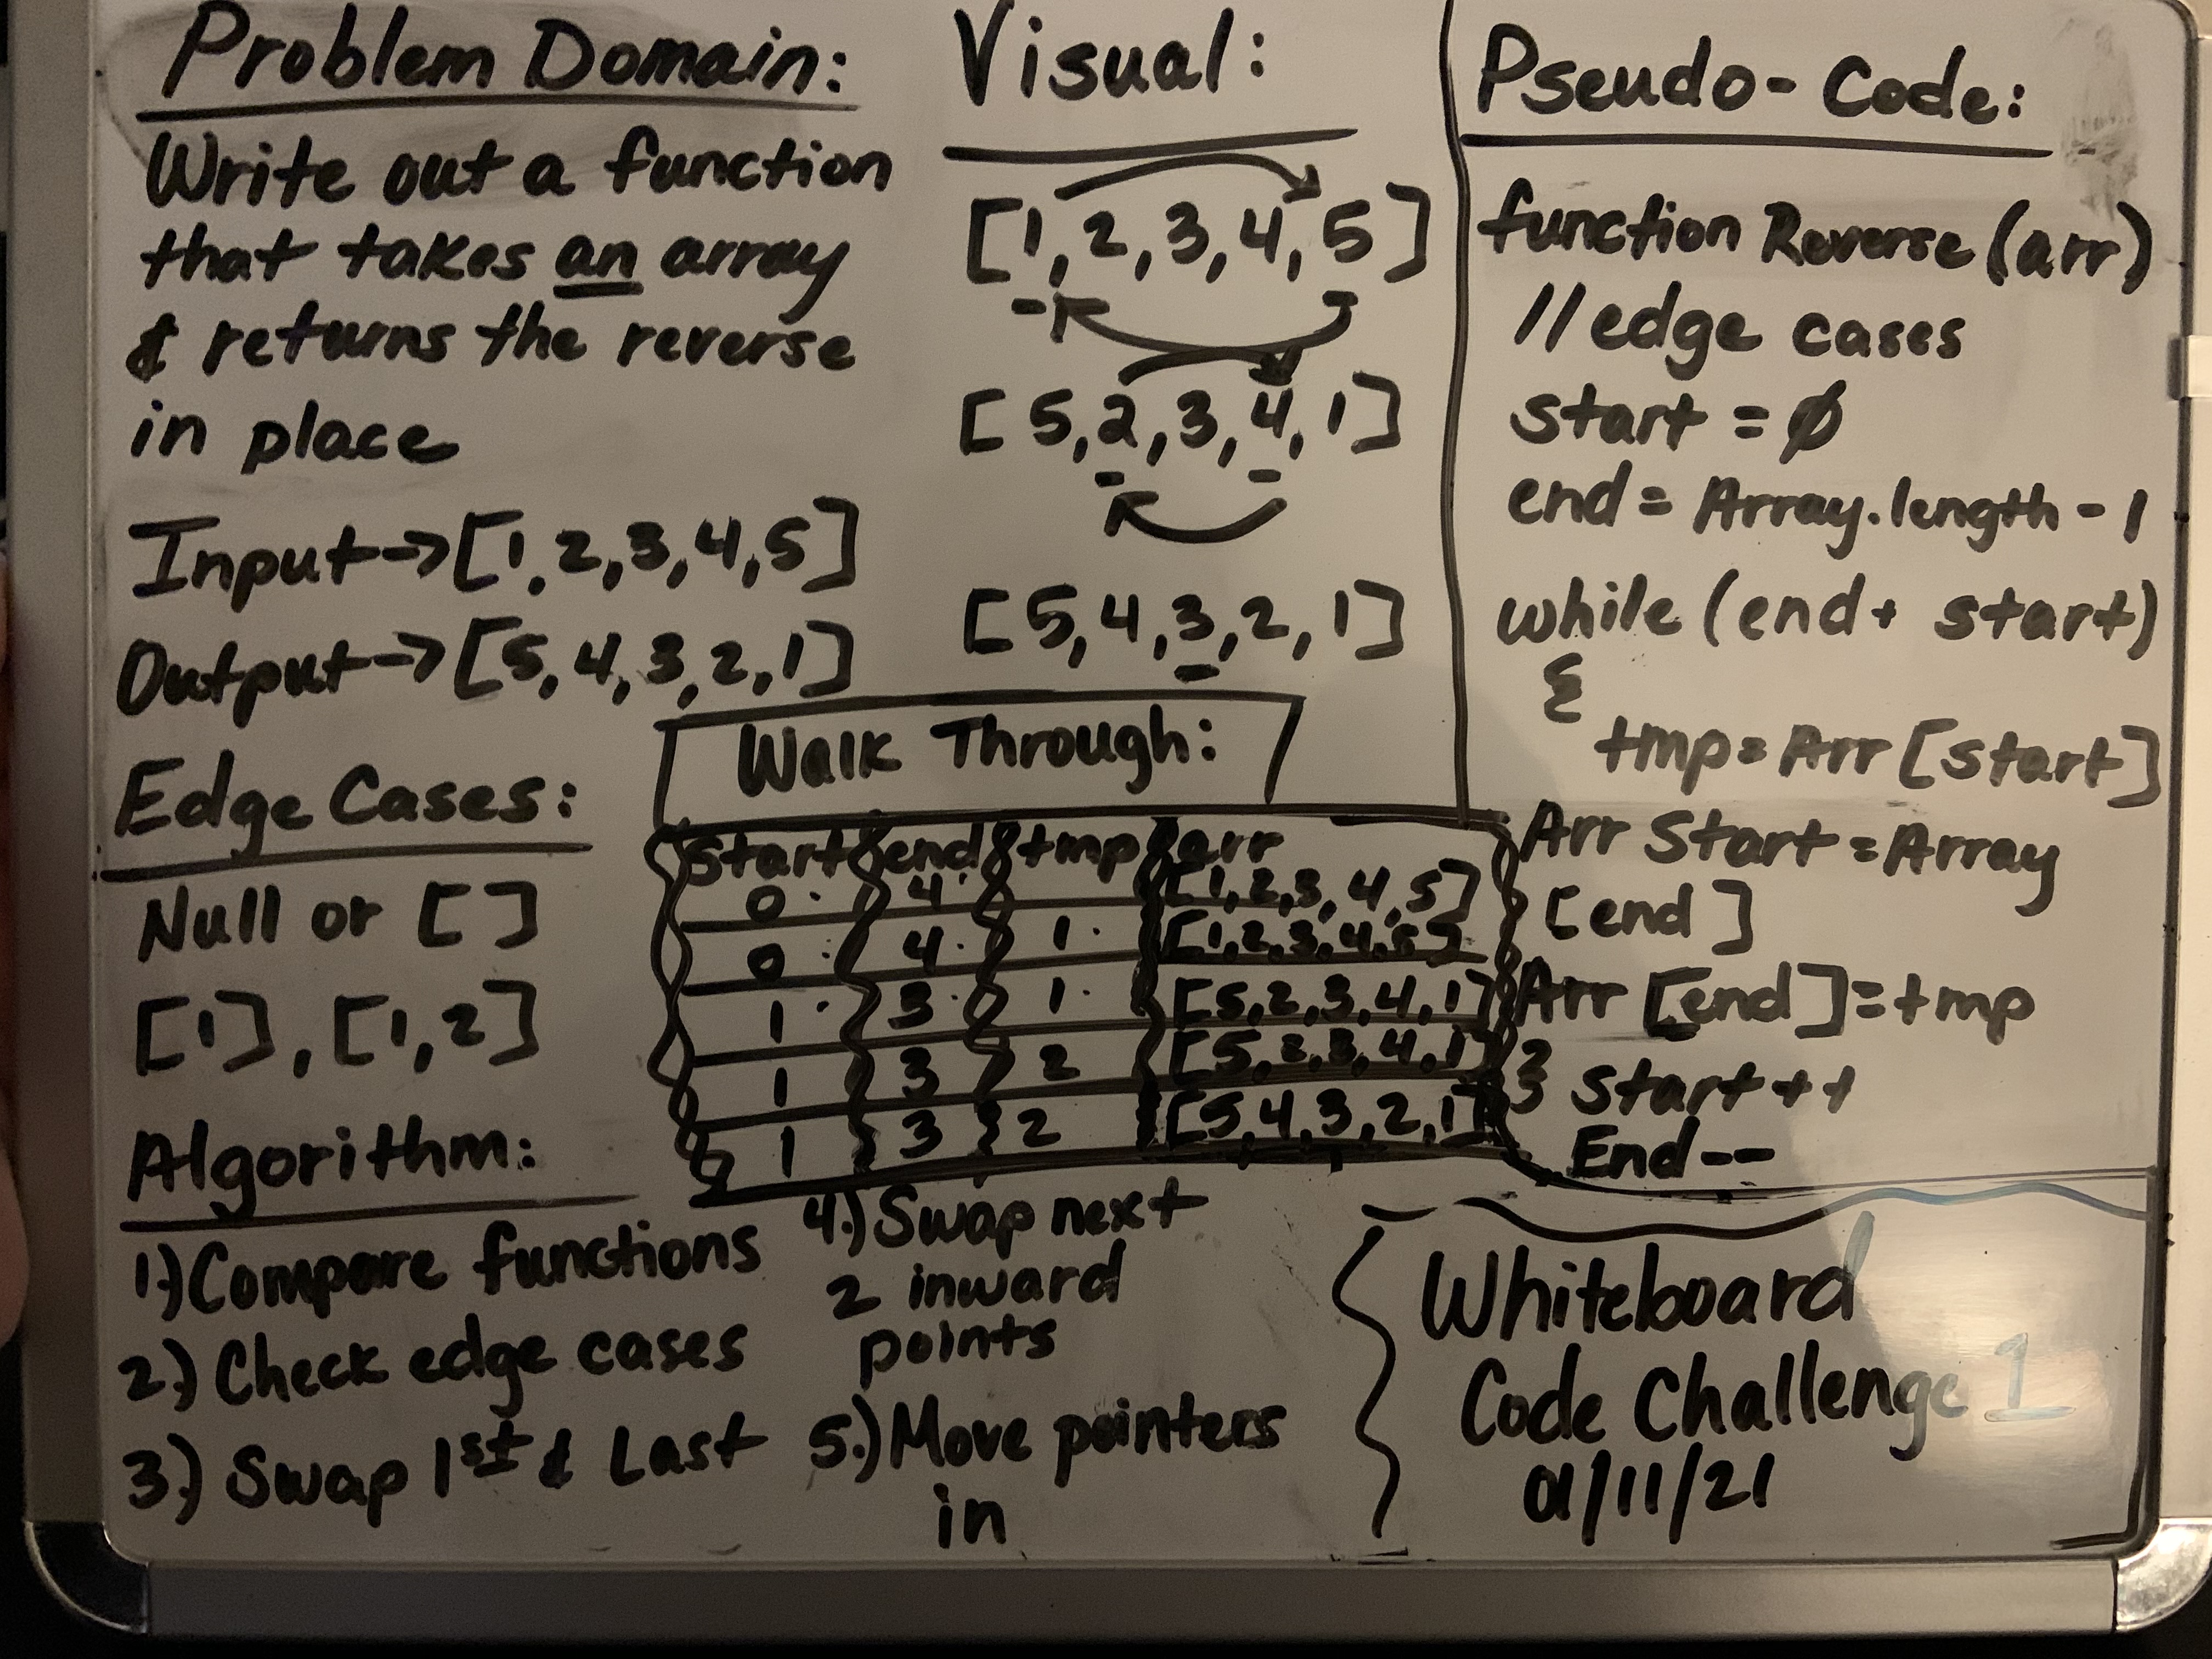 Problem Domain:
Write out a function
that takes an array
& returns the reverse
in place
Input->[1,2,3,4,5]
Output->[5,4,3,2,1]
Edge Cases:
Null or []
[1], [1,2]
Algorithm:
1.) Compare functions
2.) Check edge cases
3.) Swap 1st & Last
4.) Swap next
2 inward
points
5.) Move pointers
in
Visual:
[1,2,3,4,5]
[5,2,3,4,1]
[5,4,3,2,1]
Walk Through:
start end tmp arr
0 4 [1,2,3,4,5]
0 4 1 [1,2,3,4,5]
1 3 1 [5,2,3,4,1]
1 3 2 [5,2,3,4,1]
1 3 2 [5,4,3,2,1]
Pseudo-Code:
function Reverse (arr)
// edge cases
start = Ø
end = Array.length - 1
while (end + start)
{
tmp = Arr [start]
Arr Start = Array
[end]
Arr [end] = tmp
} Start ++
End --
Whiteboard
Code Challenge 1
01/11/21